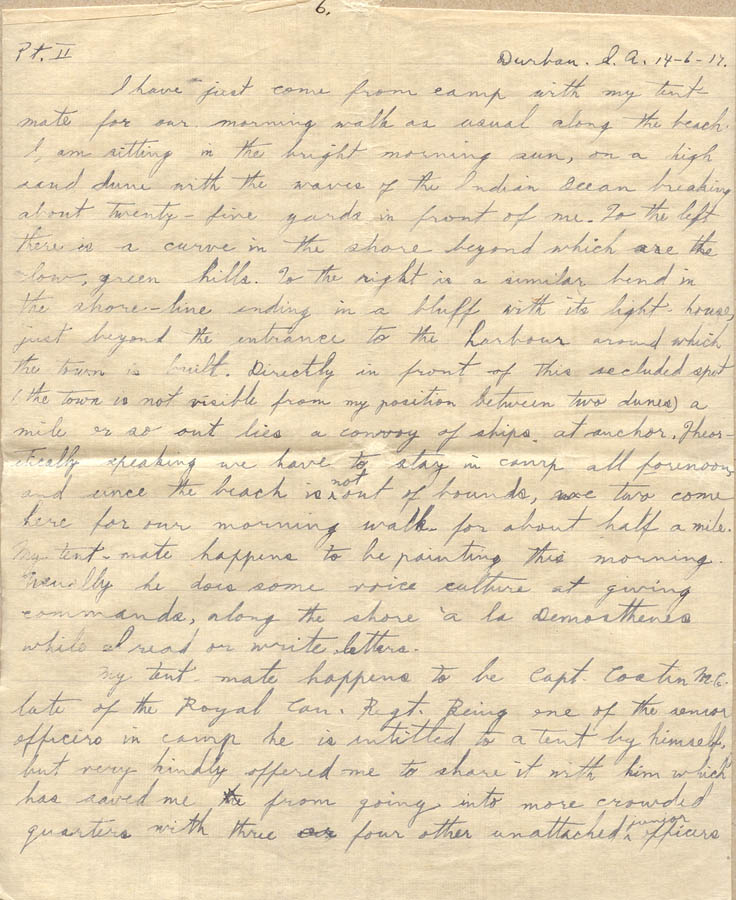 6.
Pt. II Durban. S. A. 14-6-17.
I have just come from camp with my tent-
mate for our morning walk as usual along the beach.
I am sitting in the bright morning sun, on a high
sand dune with the waves of the Indian Ocean breaking
about twenty-five yards in front of me. To the left
there is a curve in the shore beyond which are the
low, green hills. To the right is a similar bend in
the shore-line ending in a bluff with its light-house,
just beyond the entrance to the harbour around which
the town is built. Directly in front of this secluded spot
(the town is not visible from my position between two dunes) a
mile or so out lies a convoy of ships at anchor. Theor-
etically speaking we have to stay in camp all forenoon,
and since the beach is not out of bounds, we two come
here for our morning walk for about half a mile.
My tent-mate happens to be painting this morning.
Usually he does some voice culture at giving
commands, along the shore 'a la Demosthenes
while I read or write letters.
My tent-mate happens to be Capt. Costin M.C.
late of the Royal Can. Regt. Being one of the senior
officers in camp he is intitled to a tent by himself,
but very kindly offered me to share it with him which
has saved me from going into more crowded
quarters with three or four other unattached junior officers